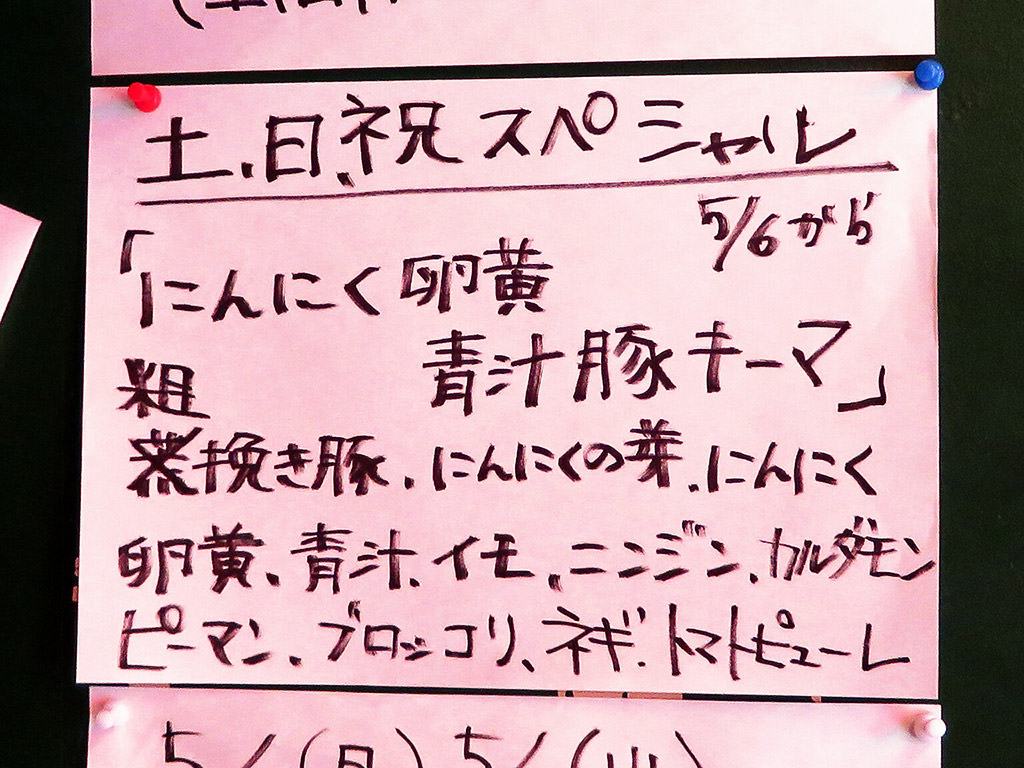 土、日、祝 スペシャル
5/6から
「にんにく卵黄
青汁豚キーマ」
粗
挽き豚、にんにくの芽、にんにく
卵黄、青汁、イモ、ニンジン、カルダモン
ピーマン、ブロッコリ、ネギ、トマトピューレ
5/(月) 5/(火)